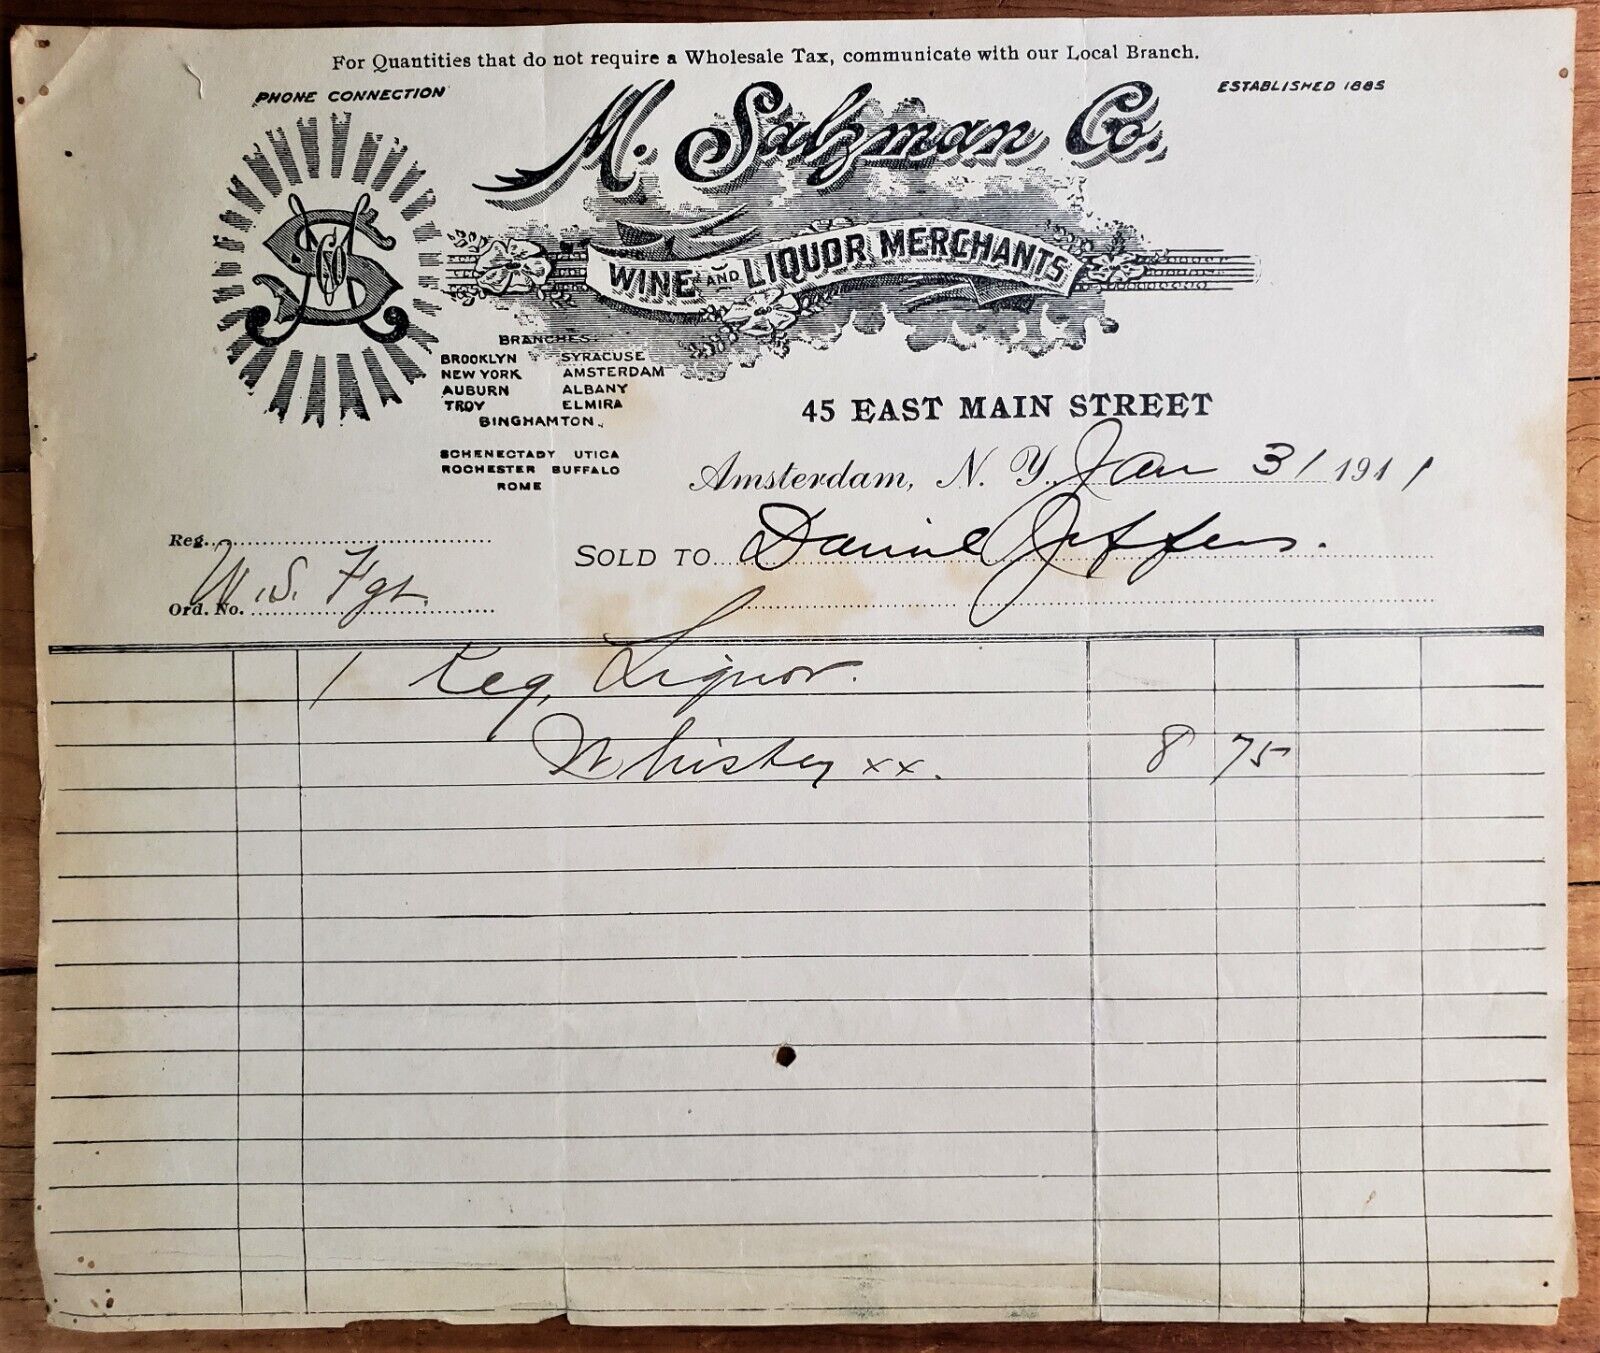 For Quantities that do not require a Wholesale Tax, communicate with our Local Branch.
PHONE CONNECTION
ESTABLISHED 1885
M. Salzman Co.
MS Co
WINE AND LIQUOR MERCHANTS
BRANCHES:
BROOKLYN SYRACUSE
NEW YORK AMSTERDAM
AUBURN ALBANY
TROY ELMIRA
BINGHAMTON.
SCHENECTADY UTICA
ROCHESTER BUFFALO
ROME
45 EAST MAIN STREET
Amsterdam, N. Y. Jan 31 1911
Reg.
SOLD TO Daniel Jeffers.
Ord. No. W.S. Fgt.
1 Keg, Liquor.
Whiskey xx. 8 75